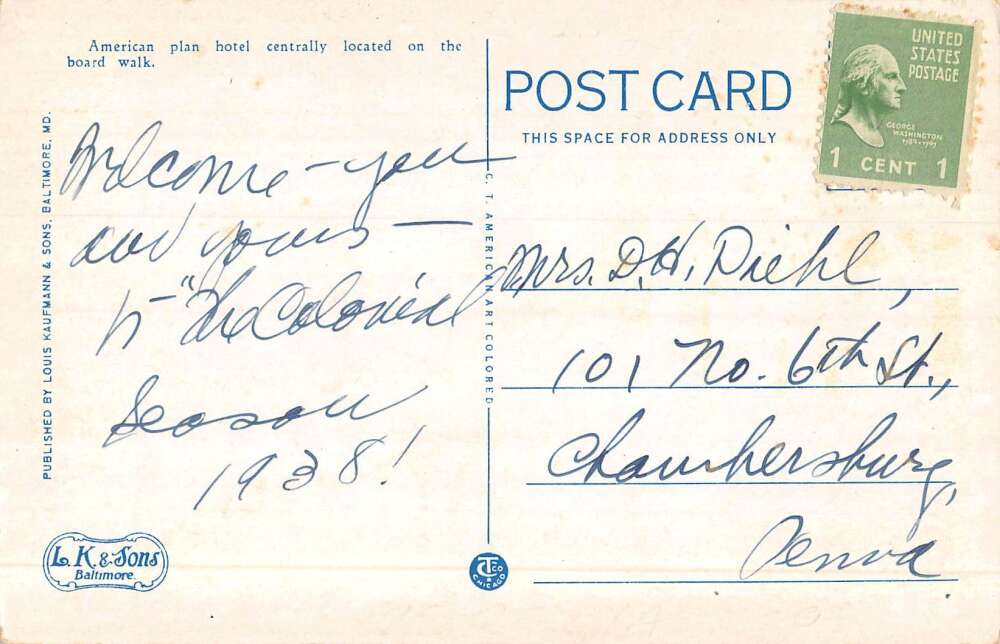 American plan hotel centrally located on the
board walk.
POST CARD
THIS SPACE FOR ADDRESS ONLY
UNITED
STATES
POSTAGE
GEORGE
WASHINGTON
1789-1797
1 CENT 1
Welcome - you
and yours -
to "The Colonial
Season
1938!
Mrs. D. H. Diehl,
101 No. 6th St.,
Chambersburg,
Penna
PUBLISHED BY LOUIS KAUFMANN & SONS, BALTIMORE, MD.
C. T. AMERICAN ART COLORED
L. K. & Sons
Baltimore
CT CO
CHICAGO